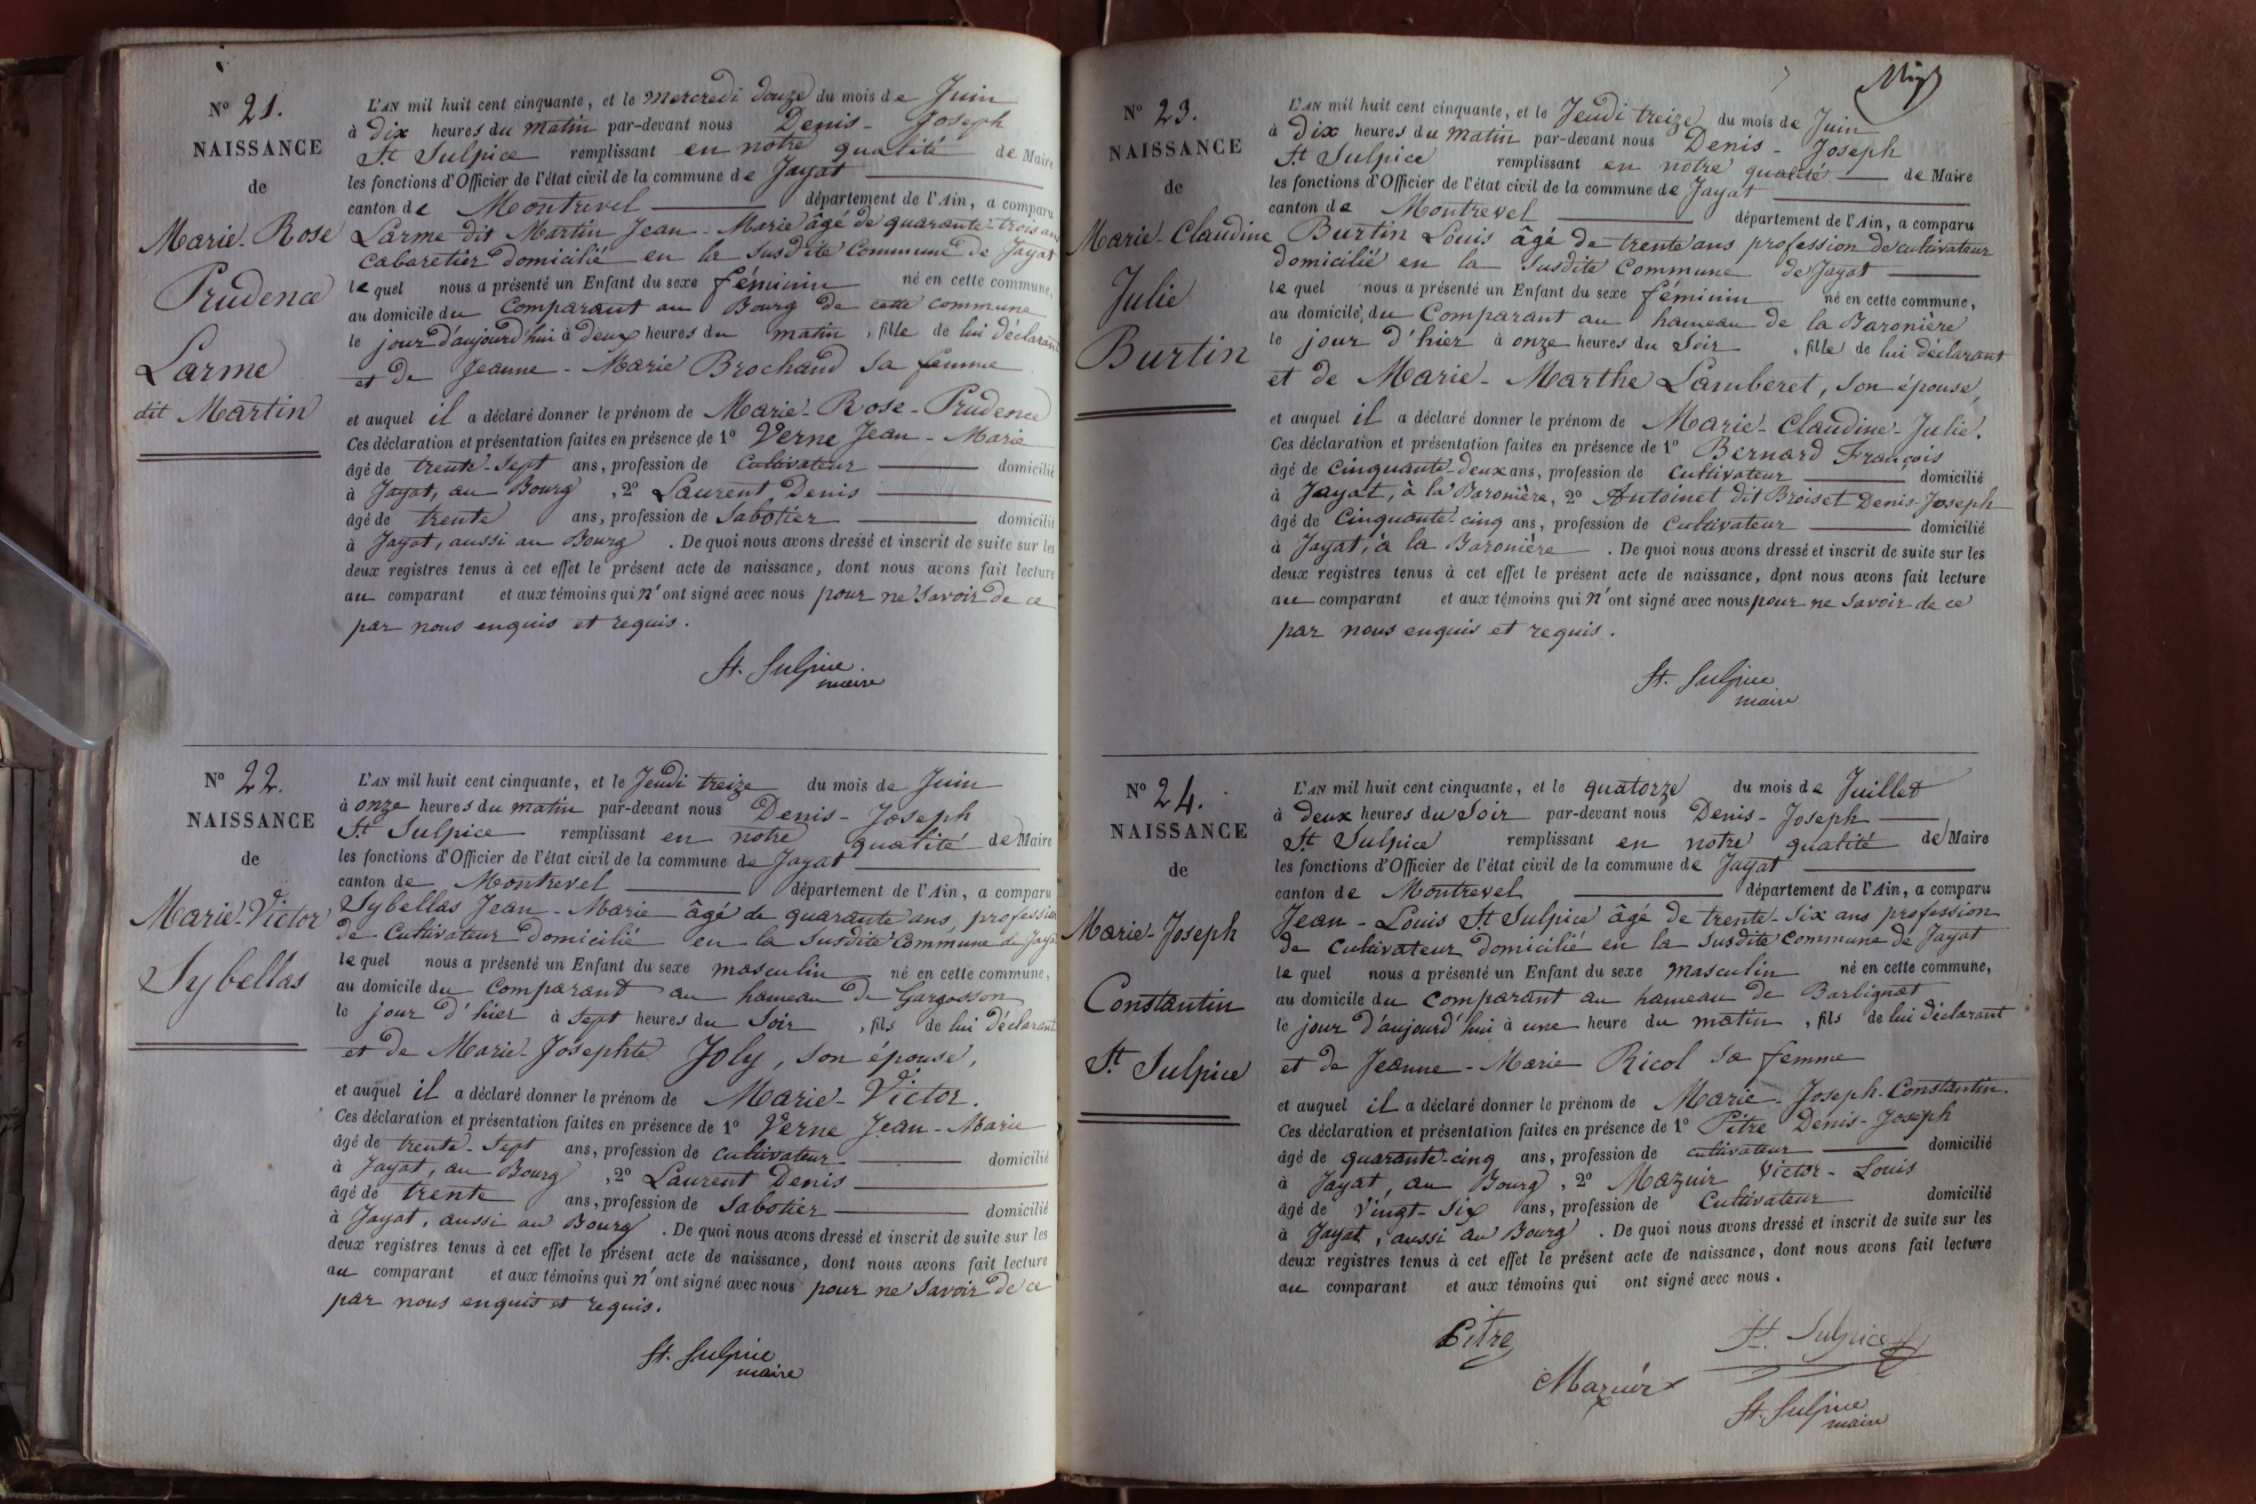 N° 21.
NAISSANCE
de
Marie-Rose
Prudence
Larme
dit Martin
L'AN mil huit cent cinquante, et le Mercredi douze du mois de Juin
à dix heures du matin par-devant nous Denis-Joseph
St Sulpice remplissant en notre qualité de Maire
les fonctions d'Officier de l'état civil de la commune de Jayat
canton de Montrevel département de l'Ain, a comparu
Larme dit Martin Jean-Marie âgé de quarante-trois ans
Cabaretier domicilié en la susdite Commune de Jayat
lequel nous a présenté un Enfant du sexe féminin né en cette commune,
au domicile du Comparant au Bourg de cette commune
le jour d'aujourd'hui à deux heures du matin, fille de lui déclarant
et de Jeanne-Marie Brochand sa femme
et auquel il a déclaré donner le prénom de Marie-Rose-Prudence
Ces déclaration et présentation faites en présence de 1° Verne Jean-Marie
âgé de trente-sept ans, profession de Cultivateur domicilié
à Jayat, au Bourg, 2° Laurent Denis
âgé de trente ans, profession de Sabotier domicilié
à Jayat, aussi au Bourg. De quoi nous avons dressé et inscrit de suite sur les
deux registres tenus à cet effet le présent acte de naissance, dont nous avons fait lecture
au comparant et aux témoins qui n'ont signé avec nous pour ne savoir de ce
par nous enquis et requis.
St. Sulpice
maire
N° 22.
NAISSANCE
de
Marie-Victor
Sybellas
L'AN mil huit cent cinquante, et le Jeudi treize du mois de Juin
à onze heures du matin par-devant nous Denis-Joseph
St Sulpice remplissant en notre qualité de Maire
les fonctions d'Officier de l'état civil de la commune de Jayat
canton de Montrevel département de l'Ain, a comparu
Sybellas Jean-Marie âgé de quarante ans, profession
de Cultivateur domicilié en la susdite commune de Jayat
lequel nous a présenté un Enfant du sexe masculin né en cette commune,
au domicile du Comparant au hameau de Gargosson
le jour d'hier à sept heures du Soir, fils de lui déclarant
et de Marie-Josephte Joly, son épouse,
et auquel il a déclaré donner le prénom de Marie-Victor.
Ces déclaration et présentation faites en présence de 1° Verne Jean-Marie
âgé de trente-sept ans, profession de cultivateur domicilié
à Jayat, au Bourg, 2° Laurent Denis
âgé de trente ans, profession de Sabotier domicilié
à Jayat, aussi au Bourg. De quoi nous avons dressé et inscrit de suite sur les
deux registres tenus à cet effet le présent acte de naissance, dont nous avons fait lecture
au comparant et aux témoins qui n'ont signé avec nous pour ne savoir de ce
par nous enquis et requis.
St. Sulpice
maire
N° 23.
NAISSANCE
de
Marie-Claudine
Julie
Burtin
L'AN mil huit cent cinquante, et le Jeudi treize du mois de Juin
à dix heures du matin par-devant nous Denis-Joseph
St Sulpice remplissant en notre qualité de Maire
les fonctions d'Officier de l'état civil de la commune de Jayat
canton de Montrevel département de l'Ain, a comparu
Burtin Louis âgé de trente ans profession de cultivateur
domicilié en la susdite Commune de Jayat
lequel nous a présenté un Enfant du sexe féminin né en cette commune,
au domicile du Comparant au hameau de la Baronière
le jour d'hier à onze heures du Soir, fille de lui déclarant
et de Marie-Marthe Lamberet, son épouse,
et auquel il a déclaré donner le prénom de Marie-Claudine-Julie.
Ces déclaration et présentation faites en présence de 1° Bernard François
âgé de Cinquante-deux ans, profession de Cultivateur domicilié
à Jayat, à la Baronière, 2° Antoinet dit Broiset Denis-Joseph
âgé de Cinquante-cinq ans, profession de Cultivateur domicilié
à Jayat, à la Baronière. De quoi nous avons dressé et inscrit de suite sur les
deux registres tenus à cet effet le présent acte de naissance, dont nous avons fait lecture
au comparant et aux témoins qui n'ont signé avec nous pour ne savoir de ce
par nous enquis et requis.
St. Sulpice
maire
N° 24.
NAISSANCE
de
Marie-Joseph
Constantin
St Sulpice
L'AN mil huit cent cinquante, et le quatorze du mois de Juillet
à deux heures du Soir par-devant nous Denis-Joseph
St Sulpice remplissant en notre qualité de Maire
les fonctions d'Officier de l'état civil de la commune de Jayat
canton de Montrevel département de l'Ain, a comparu
Jean-Louis St Sulpice âgé de trente-six ans profession
de cultivateur domicilié en la susdite commune de Jayat
lequel nous a présenté un Enfant du sexe masculin né en cette commune,
au domicile du comparant au hameau de Barbignat
le jour d'aujourd'hui à une heure du matin, fils de lui déclarant
et de Jeanne-Marie Ricol sa femme
et auquel il a déclaré donner le prénom de Marie-Joseph-Constantin.
Ces déclaration et présentation faites en présence de 1° Pitre Denis-Joseph
âgé de quarante-cinq ans, profession de cultivateur domicilié
à Jayat, au Bourg, 2° Mazuir Victor-Louis
âgé de Vingt-six ans, profession de Cultivateur domicilié
à Jayat, aussi au Bourg. De quoi nous avons dressé et inscrit de suite sur les
deux registres tenus à cet effet le présent acte de naissance, dont nous avons fait lecture
au comparant et aux témoins qui ont signé avec nous.
Pitre
St. Sulpice
Mazuir
St. Sulpice
maire